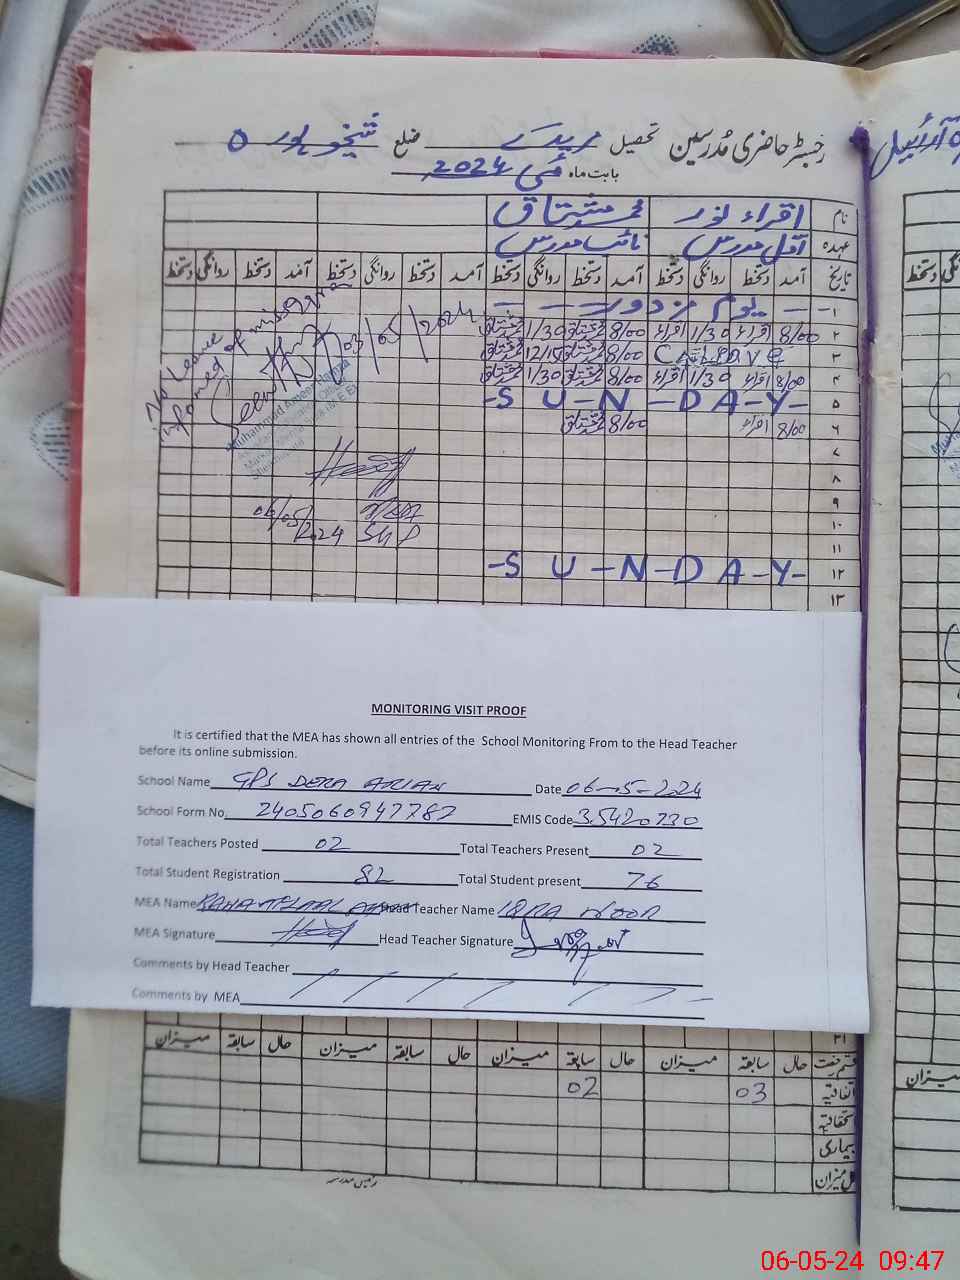 رجسٹر حاضری مدرسین تحصیل مریدکے ضلع شیخوپورہ
بابت ماہ مئی 2024
نام اقراء نور محمد مشتاق
عہدہ اول مدرس نائب مدرس
تاریخ آمد دستخط روانگی دستخط آمد دستخط روانگی دستخط آمد دستخط روانگی دستخط آمد دستخط روانگی دستخط
۱ - یوم مزدور - -
۲ 8/00 اقراء 1/30 اقراء 8/00 مشتاق 1/30 مشتاق
۳ 8/00 مشتاق 12/15 مشتاق
۴ 8/00 اقراء 1/30 اقراء 8/00 مشتاق 1/30 مشتاق
۵ -S U-N-DA-Y-
۶ 8/00 اقراء 8/00 مشتاق
۷
۸
۹
۱۰
۱۱
۱۲ -S U-N-DA-Y-
۱۳
No Leave
informed
03/05/2024
06/05/2024
MONITORING VISIT PROOF
It is certified that the MEA has shown all entries of the School Monitoring From to the Head Teacher
before its online submission.
School Name GPS DERA Date 06-5-2024
School Form No. 2405060947787 EMIS Code 35420730
Total Teachers Posted 02 Total Teachers Present 02
Total Student Registration 82 Total Student present 76
MEA Name Head Teacher Name IQRA NOOR
MEA Signature Head Teacher Signature
Comments by Head Teacher
Comments by MEA
حال سابقہ میزان حال سابقہ میزان حال سابقہ میزان حال سابقہ میزان
اتفاقیہ 03 02
استحقاقیہ
بیماری
کل میزان
رئیس مدرسہ
06-05-24 09:47